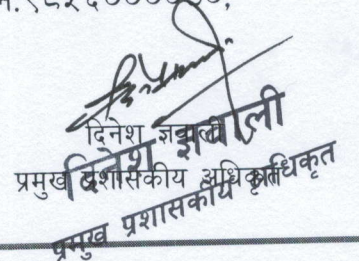 दिनेश ज्ञवाली
प्रमुख प्रशासकीय अधिकृत
दिनेश ज्ञवाली
प्रमुख प्रशासकीय अधिकृत